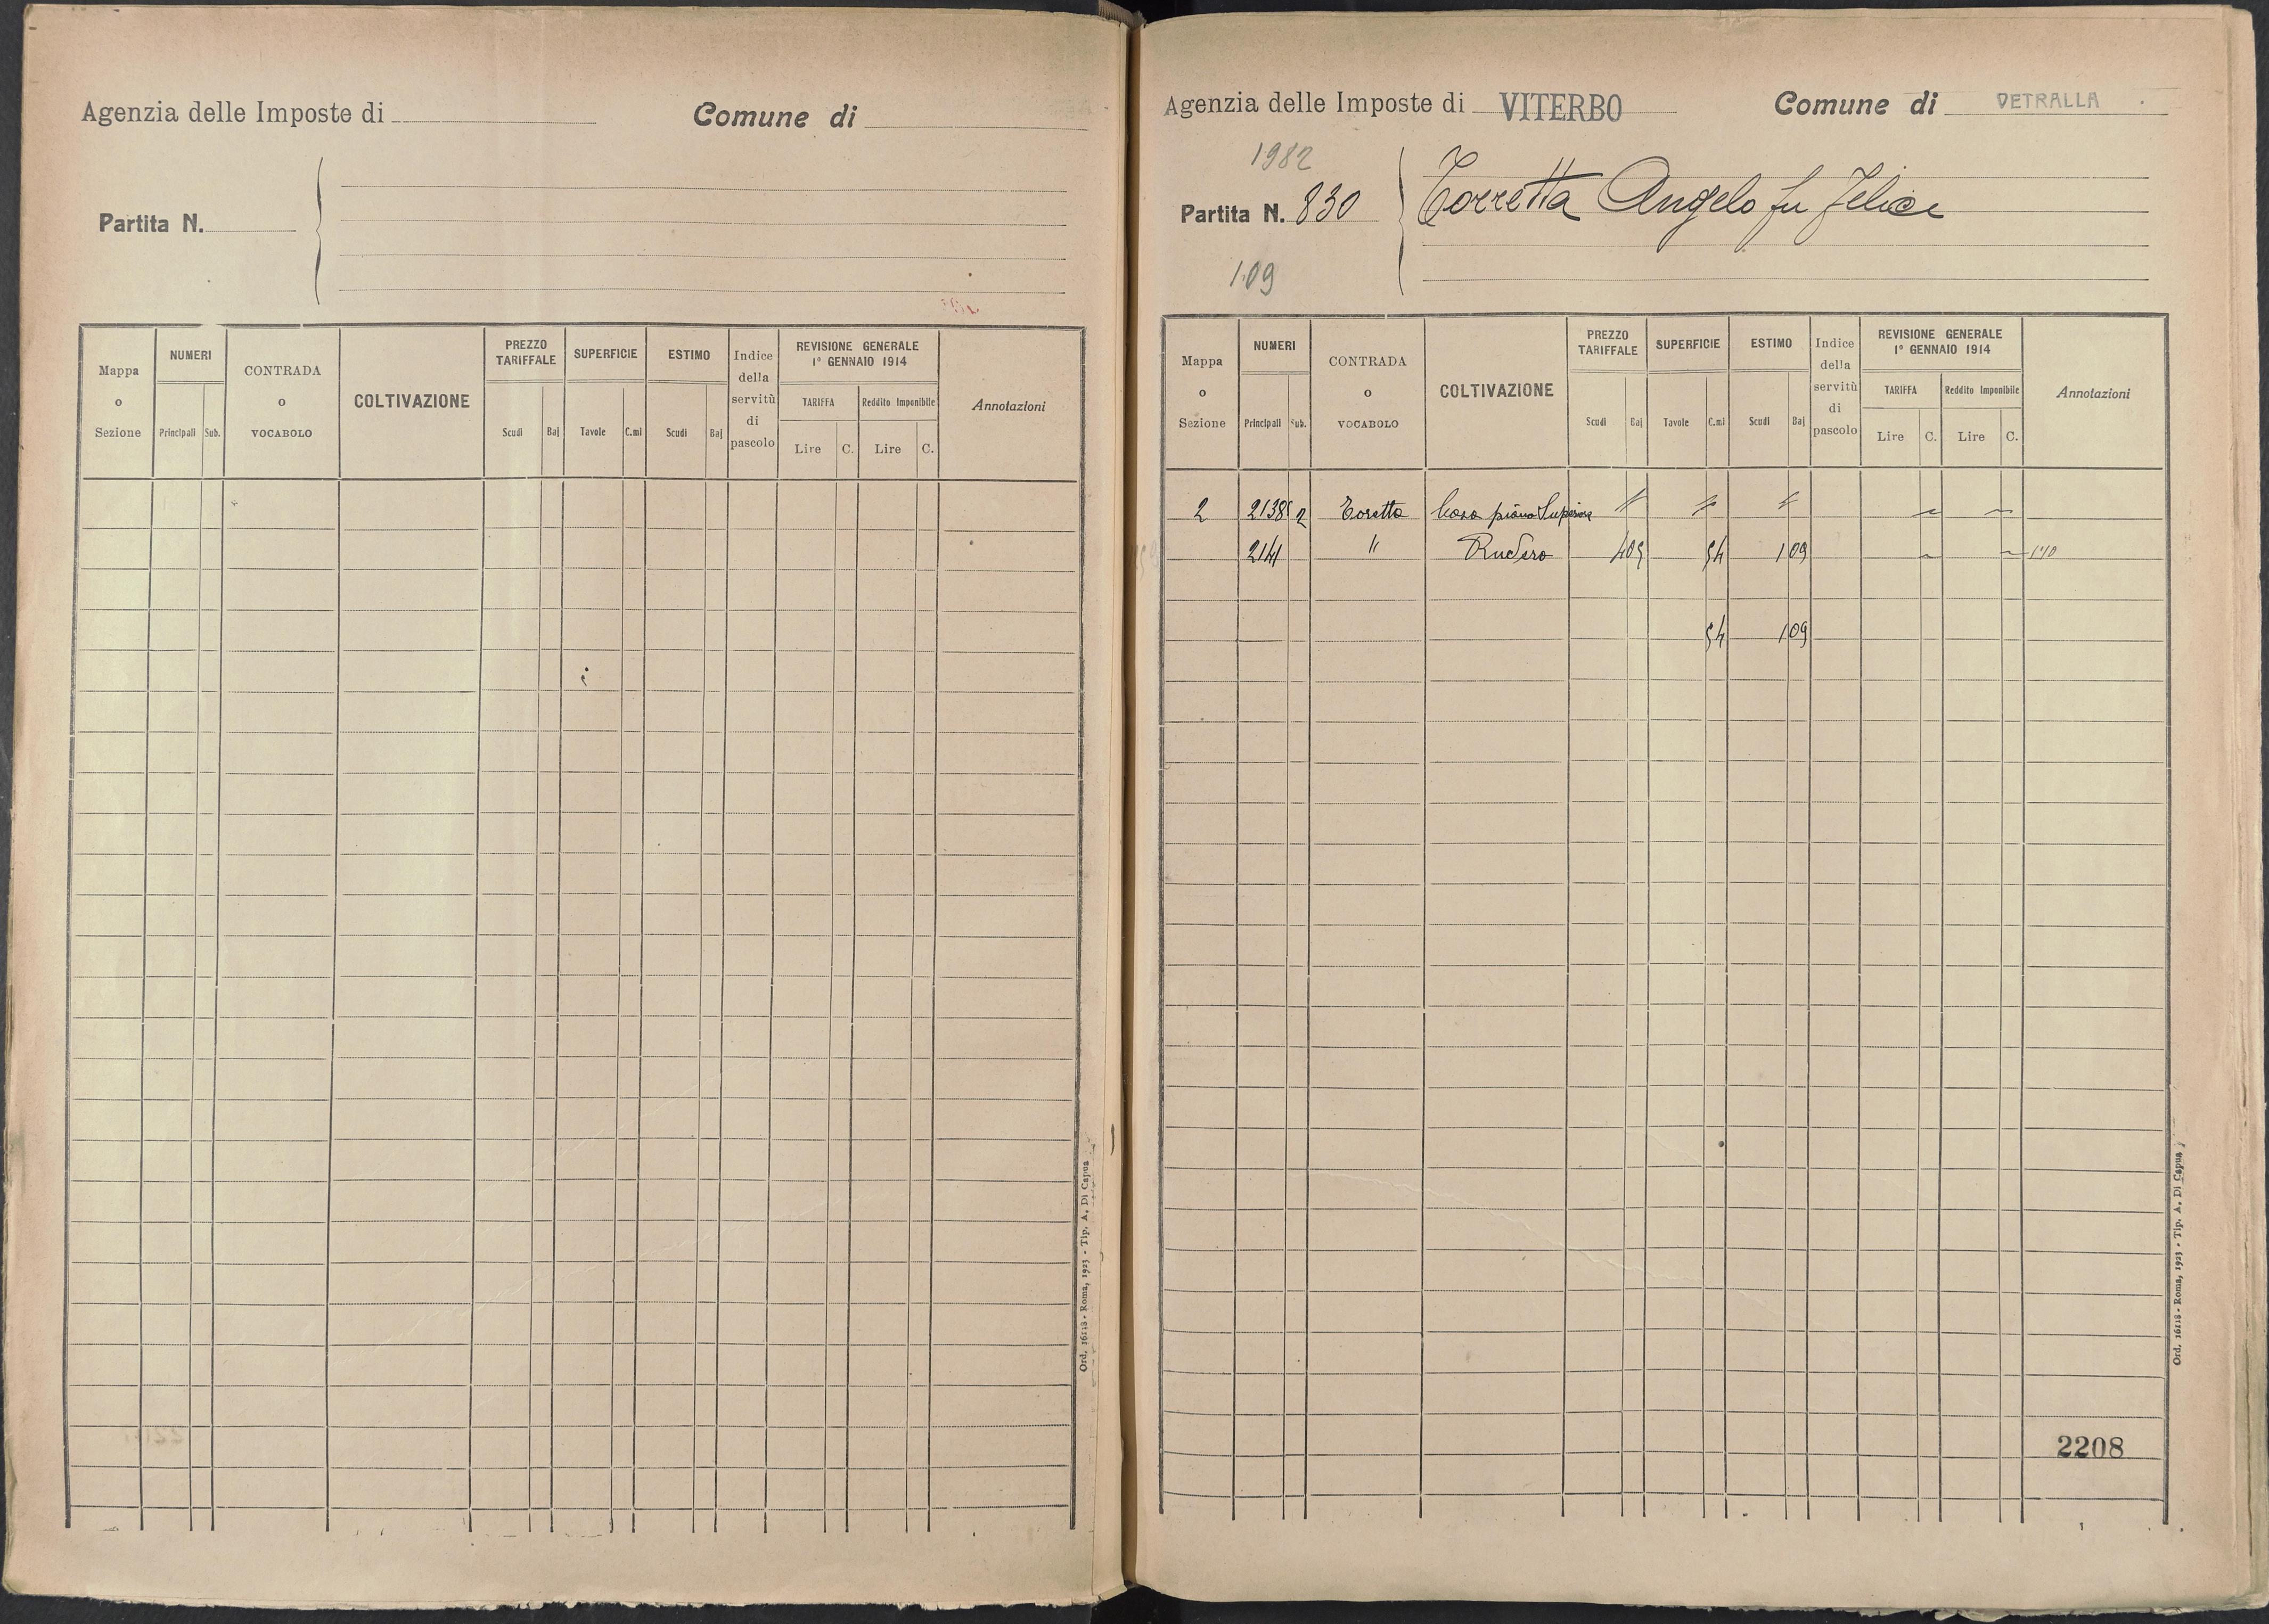 Agenzia delle Imposte di
Comune di
Partita N.
Mappa o Sezione
NUMERI
Principali Sub.
CONTRADA o VOCABOLO
COLTIVAZIONE
PREZZO TARIFFALE
Scudi Baj
SUPERFICIE
Tavole C.mi
ESTIMO
Scudi Baj
Indice della servitù di pascolo
REVISIONE GENERALE
1° GENNAIO 1914
TARIFFA
Lire C.
Reddito Imponibile
Lire C.
Annotazioni
Ord. 16118 - Roma, 1923 - Tip. A. Di Capua
Agenzia delle Imposte di VITERBO
Comune di VETRALLA
1982
Partita N. 830
Torretta Angelo fu Felice
1.09
Mappa o Sezione
NUMERI
Principali Sub.
CONTRADA o VOCABOLO
COLTIVAZIONE
PREZZO TARIFFALE
Scudi Baj
SUPERFICIE
Tavole C.mi
ESTIMO
Scudi Baj
Indice della servitù di pascolo
REVISIONE GENERALE
1° GENNAIO 1914
TARIFFA
Lire C.
Reddito Imponibile
Lire C.
Annotazioni
2 2138 2 Casa piano Superiore " " "
2141 " Rudero 54 1 09
54 1 09
2208
Ord. 16118 - Roma, 1923 - Tip. A. Di Capua